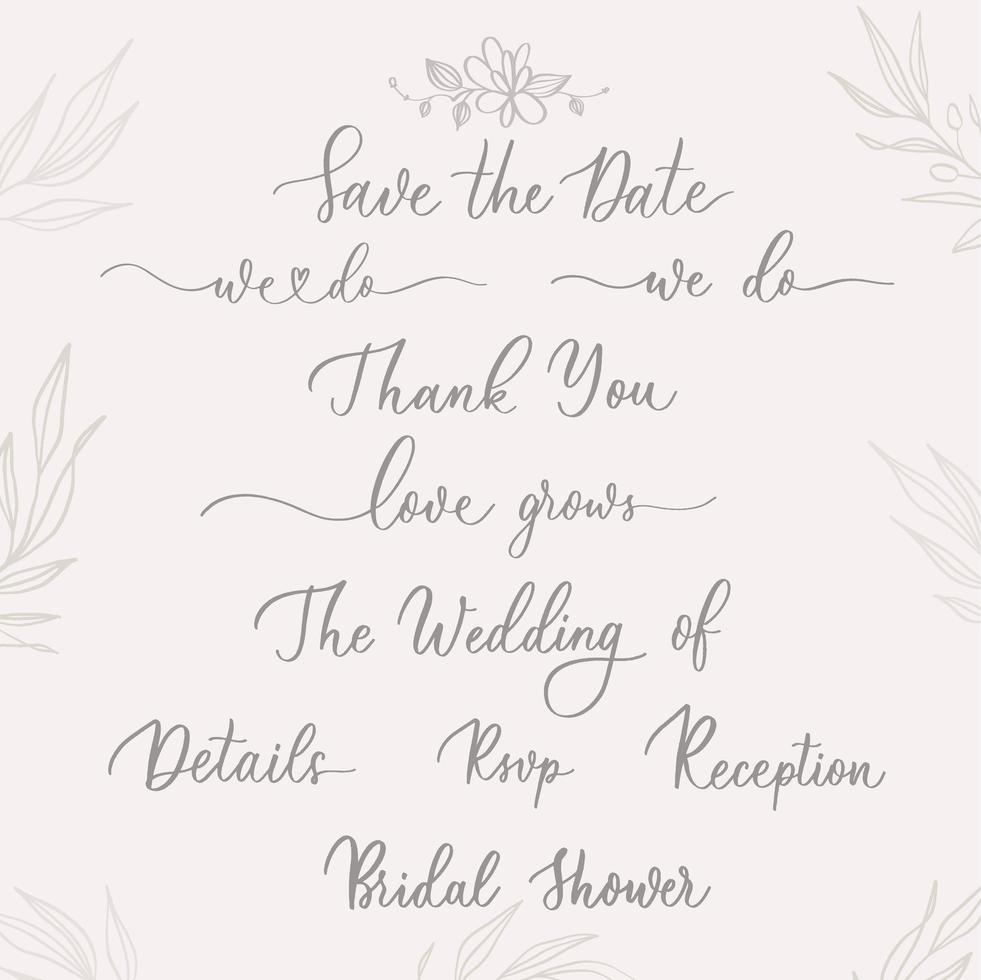 Save the Date
we do we do
Thank You
love grows
The Wedding of
Details Rsvp Reception
Bridal Shower